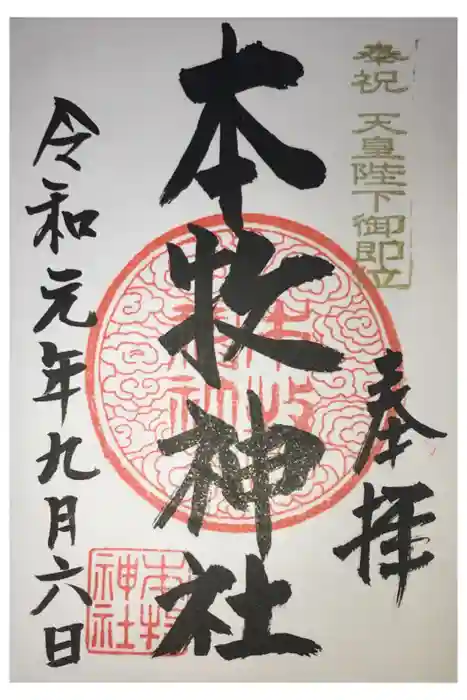 奉祝 天皇陛下御即位
奉拝
本牧神社
本牧神社
令和元年九月六日